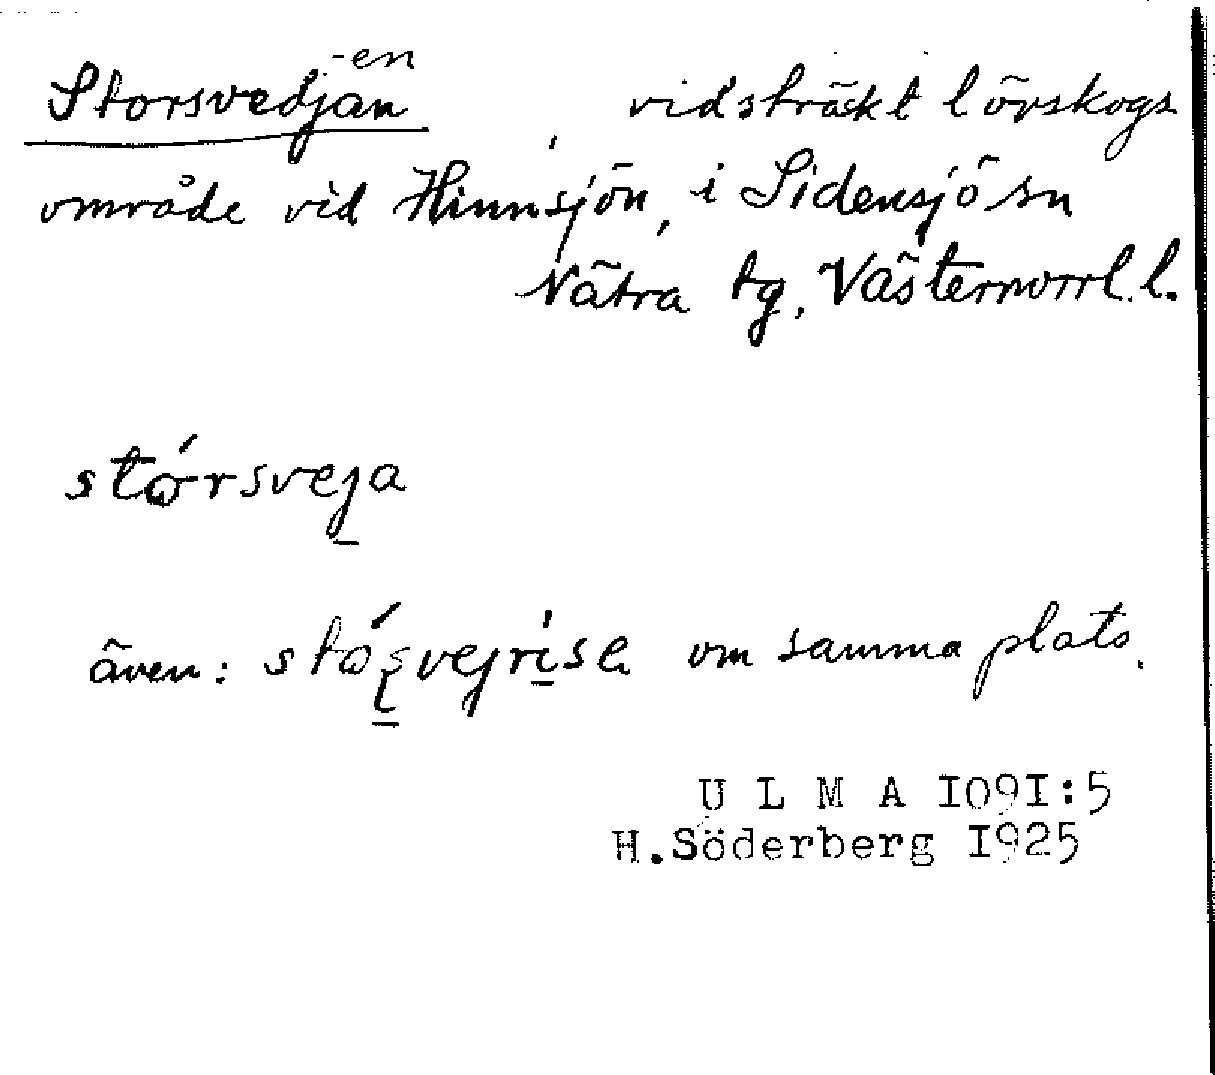 -en
Storsvedjan, vidsträckt lövskogs
område vid Hinnsjön, i Sidensjö sn
Nätra tg, Västernorrl. l.
stórsveja
även: stóṣvejrisə om samma plats.
U L M A I09I:5
H.Söderberg I925